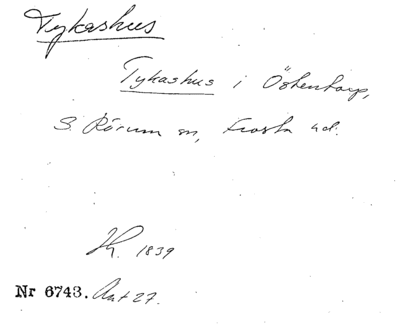 Tykashus
Tykashus i Östentorp,
S. Rörum sn, Frosta hd.
1839
Nr 6743. Ant 27.